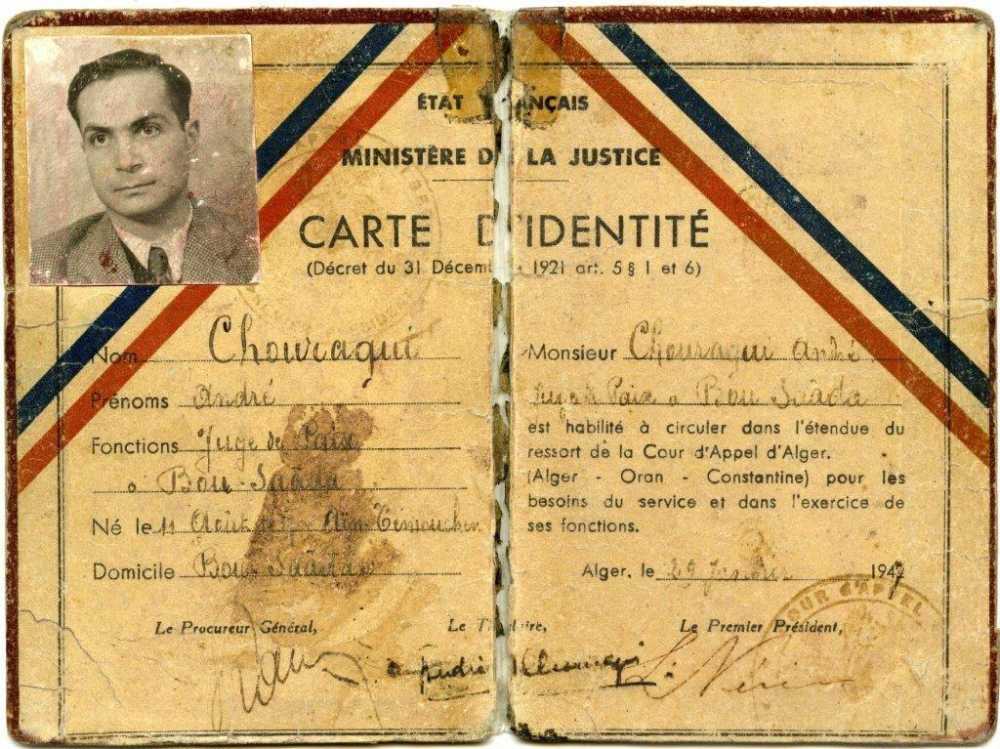 ÉTAT ANÇAIS
MINISTÈRE D LA JUSTICE
CARTE D'IDENTITÉ
(Décret du 31 Décem 1921 art. 5 § 1 et 6)
Nom Chouraqui
Prénoms André
Fonctions Juge de Paix
à Bou-Saâda
Né le 11 Août Aïn-Témouchen
Domicile Bou Saâda
Le Procureur Général,
Le T laire,
André Chouraqui
Monsieur Chouraqui André
Juge de Paix à Bou Saâda
est habilité à circuler dans l'étendue du
ressort de la Cour d'Appel d'Alger.
(Alger - Oran - Constantine) pour les
besoins du service et dans l'exercice de
ses fonctions.
Alger, le 29 194
Le Premier Président,
UR D'APPEL